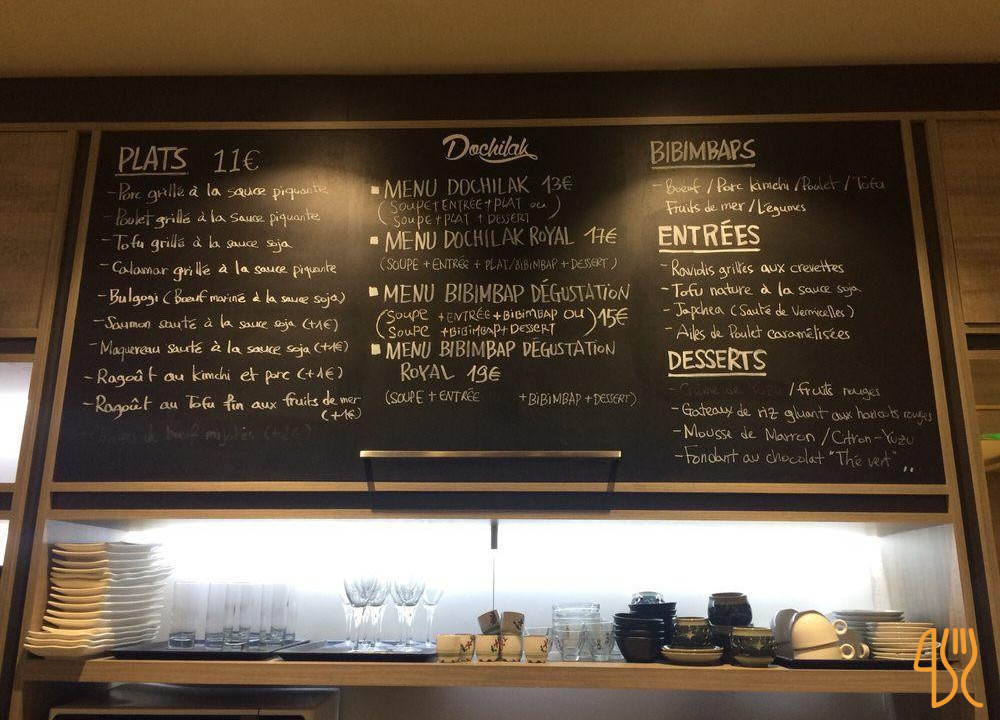 PLATS 11€
- Porc grillé à la sauce piquante
- Poulet grillé à la sauce piquante
- Tofu grillé à la sauce soja
- Calamar grillé à la sauce piquante
- Bulgogi (Bœuf mariné à la sauce soja)
- Saumon sauté à la sauce soja (+1€)
- Maquereau sauté à la sauce soja (+1€)
- Ragoût au kimchi et porc (+1€)
- Ragoût au Tofu fin aux fruits de mer
(+1€)
de bœuf mijotés (+2€)
Dochilak
MENU DOCHILAK 13€
(SOUPE + ENTRÉE + PLAT ou
SOUPE + PLAT + DESSERT)
MENU DOCHILAK ROYAL 17€
(SOUPE + ENTRÉE + PLAT/BIBIMBAP + DESSERT)
MENU BIBIMBAP DÉGUSTATION
(SOUPE + ENTRÉE + BIBIMBAP OU
SOUPE + BIBIMBAP + DESSERT) 15€
MENU BIBIMBAP DÉGUSTATION
ROYAL 19€
(SOUPE + ENTRÉE + BIBIMBAP + DESSERT)
BIBIMBAPS
- Bœuf / Porc kimchi / Poulet / Tofu
Fruits de mer / Légumes
ENTRÉES
- Raviolis grillés aux crevettes
- Tofu nature à la sauce soja
- Japchea (Sauté de Vermicelles)
- Ailes de Poulet caramélisées
DESSERTS
- Yuzu / Fruits rouges
- Gateaux de riz gluant aux haricots rouges
- Mousse de Marron / Citron-Yuzu
- Fondant au chocolat "Thé vert"